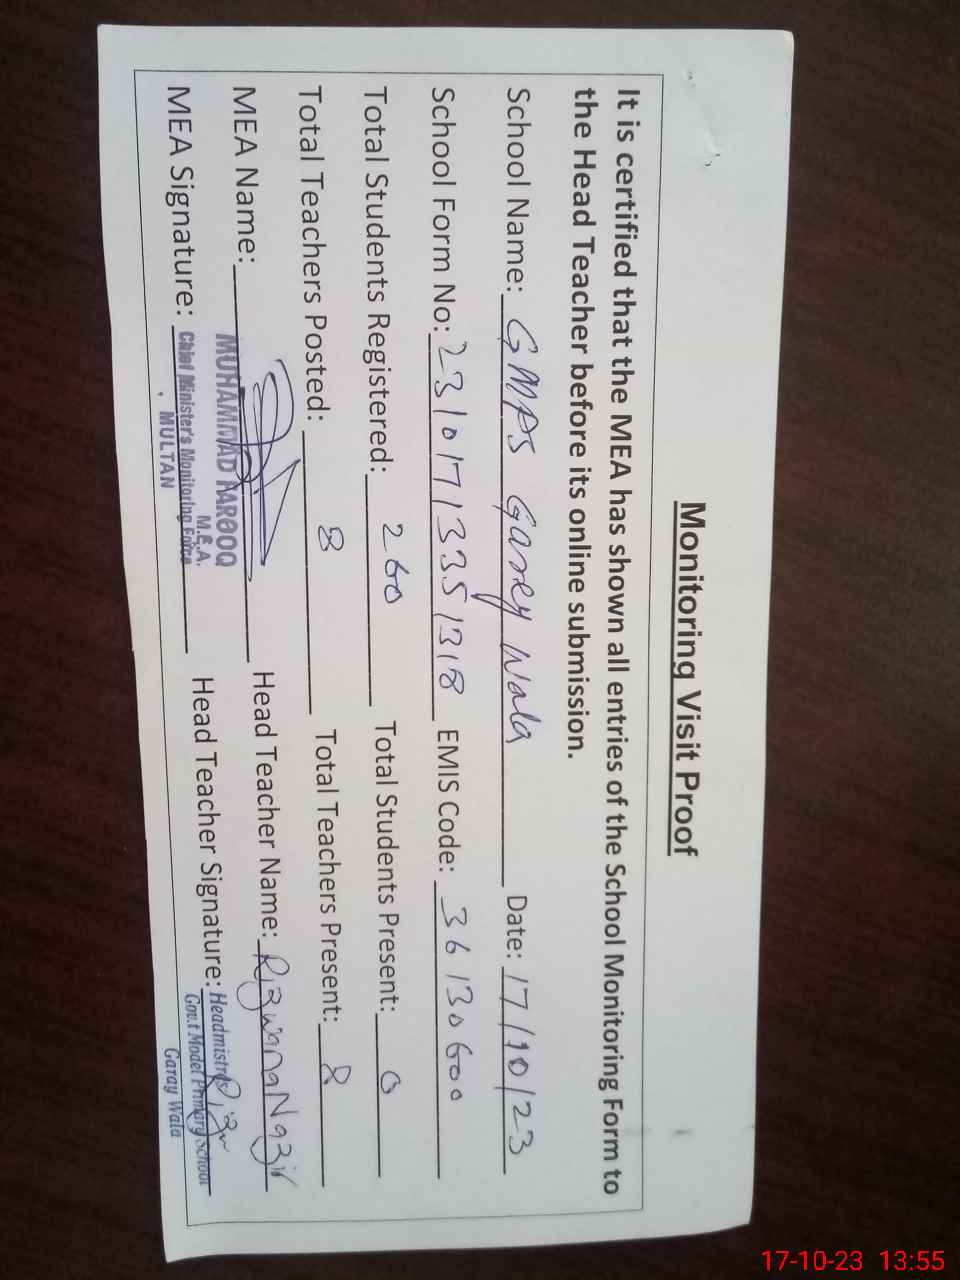 Monitoring Visit Proof
It is certified that the MEA has shown all entries of the School Monitoring Form to
the Head Teacher before its online submission.
School Name: GMPS Garey Wala Date: 17/10/23
School Form No: 23101713351318 EMIS Code: 36130600
Total Students Registered: 260 Total Students Present: 0
Total Teachers Posted: 8 Total Teachers Present: 8
MEA Name: MUHAMMAD FAROOQ Head Teacher Name: Rizwana Nazir
M.E.A.
MEA Signature: Chief Minister's Monitoring Force Head Teacher Signature: Headmistress
MULTAN
Gov.t Model Primary School
Garay Wala
17-10-23 13:55